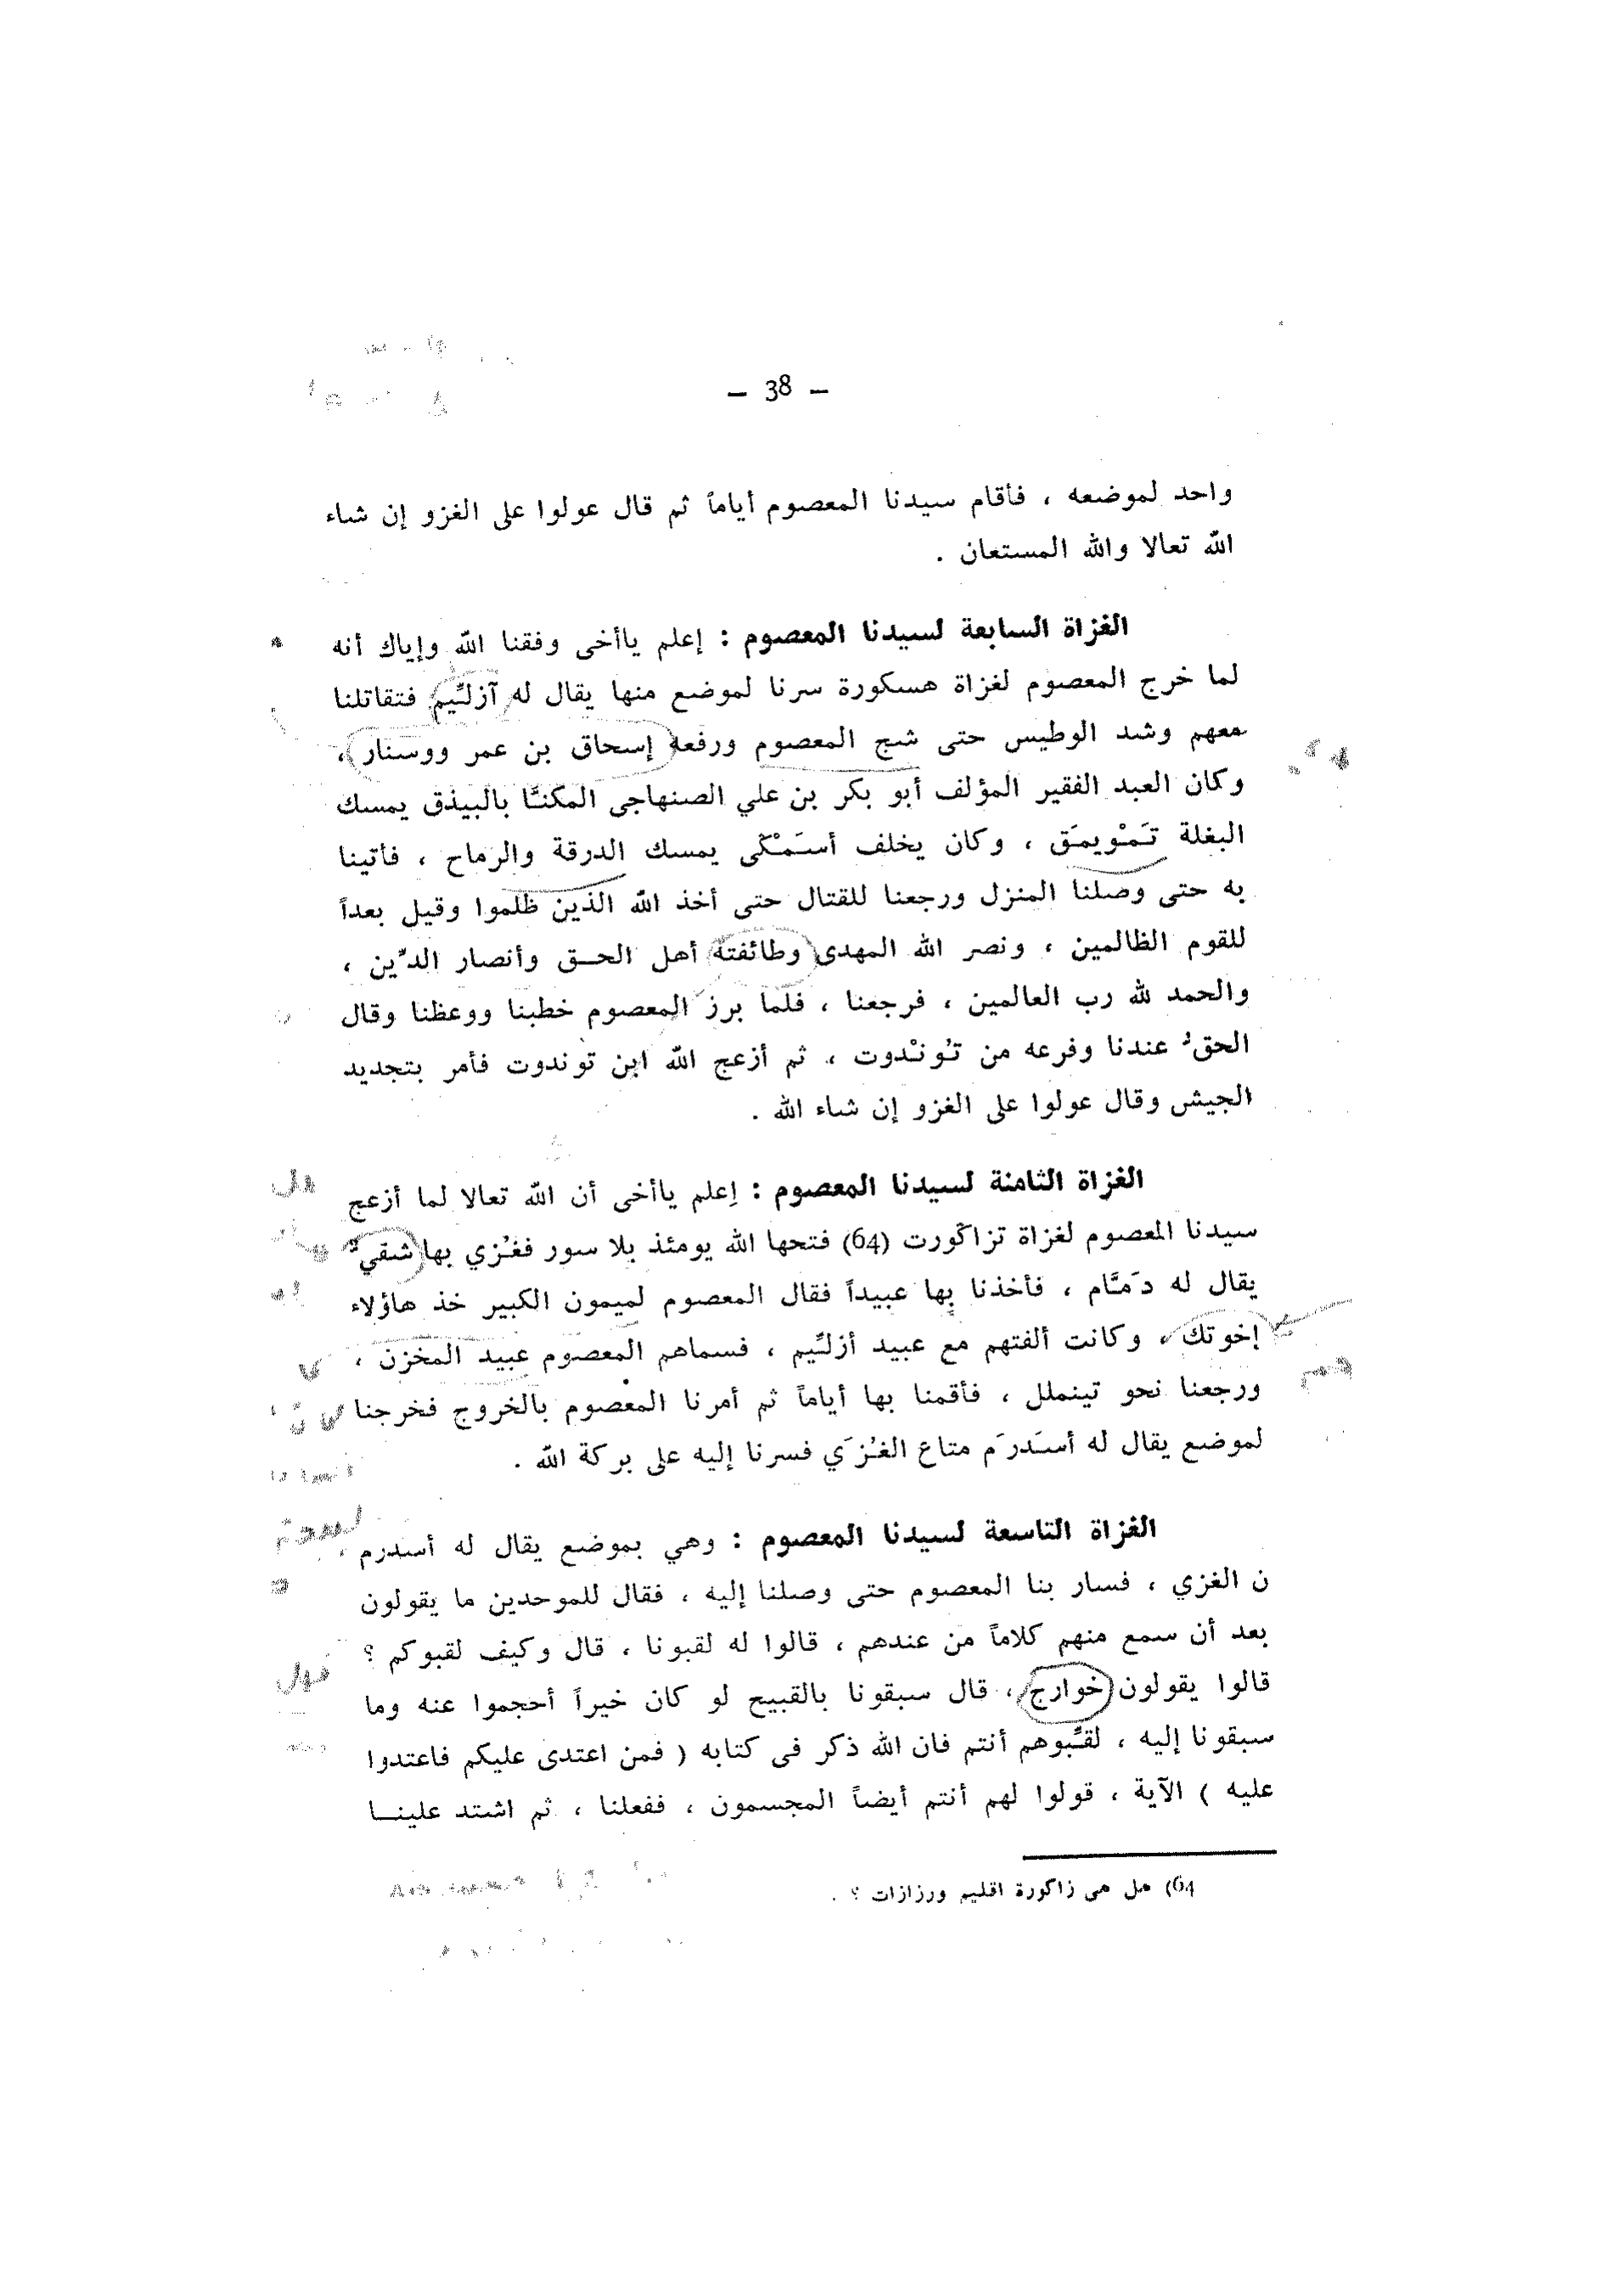 — 38 —
واحد لموضعه ، فأقام سيدنا المعصوم أياماً ثم قال عولوا على الغزو إن شاء
الله تعالا والله المستعان .
الغزاة السابعة لسيدنا المعصوم : إعلم ياأخى وفقنا الله وإياك أنه
لما خرج المعصوم لغزاة هسكورة سرنا لموضع منها يقال له آزلـِّيم فتقاتلنا
معهم وشد الوطيس حتى شج المعصوم ورفعه إسحاق بن عمر ووسنار ،
وكان العبد الفقير المؤلف أبو بكر بن علي الصنهاجى المكنـَّا بالبيذق يمسك
البغلة تـَمـْويمـَق ، وكان يخلف أسـَمـْكّى يمسك الدرقة والرماح ، فأتينا
به حتى وصلنا المنزل ورجعنا للقتال حتى أخذ الله الذين ظلموا وقيل بعداً
للقوم الظالمين ، ونصر الله المهدى وطائفتة أهل الحــق وأنصار الدِّين ،
والحمد لله رب العالمين ، فرجعنا ، فلما برز المعصوم خطبنا ووعظنا وقال
الحقُّ عندنا وفرعه من تـُونـْدوت ، ثم أزعج الله ابن توندوت فأمر بتجديد
الجيش وقال عولوا على الغزو إن شاء الله .
الغزاة الثامنة لسيدنا المعصوم : إعلم ياأخى أن الله تعالا لما أزعج
سيدنا المعصوم لغزاة تزاكّورت (64) فتحها الله يومئذ بلا سور فغـُزي بها شقيٌّ
يقال له دَمـَّام ، فأخذنا بها عبيداً فقال المعصوم لميمون الكبير خذ هاؤلاء
إخوتك ، وكانت ألفتهم مع عبيد أزلـِّيم ، فسماهم المعصوم عبيد المخزن ،
ورجعنا نحو تينملل ، فأقمنا بها أياماً ثم أمرنا المعصوم بالخروج فخرجنا
لموضع يقال له أسـَدرَم متاع الغـُزَي فسرنا إليه على بركة الله .
الغزاة التاسعة لسيدنا المعصوم : وهي بموضع يقال له أسدرم
ن الغزي ، فسار بنا المعصوم حتى وصلنا إليه ، فقال للموحدين ما يقولون
بعد أن سمع منهم كلاماً من عندهم ، قالوا له لقبونا ، قال وكيف لقبوكم ؟
قالوا يقولون خوارج ، قال سبقونا بالقبيح لو كان خيراً أحجموا عنه وما
سبقونا إليه ، لقـِّبوهم أنتم فان الله ذكر فى كتابه ( فمن اعتدى عليكم فاعتدوا
عليه ) الآية ، قولوا لهم أنتم أيضاً المجسمون ، ففعلنا ، ثم اشتد علينــا
64) هل هى زاكورة اقليم ورزازات ؟ .